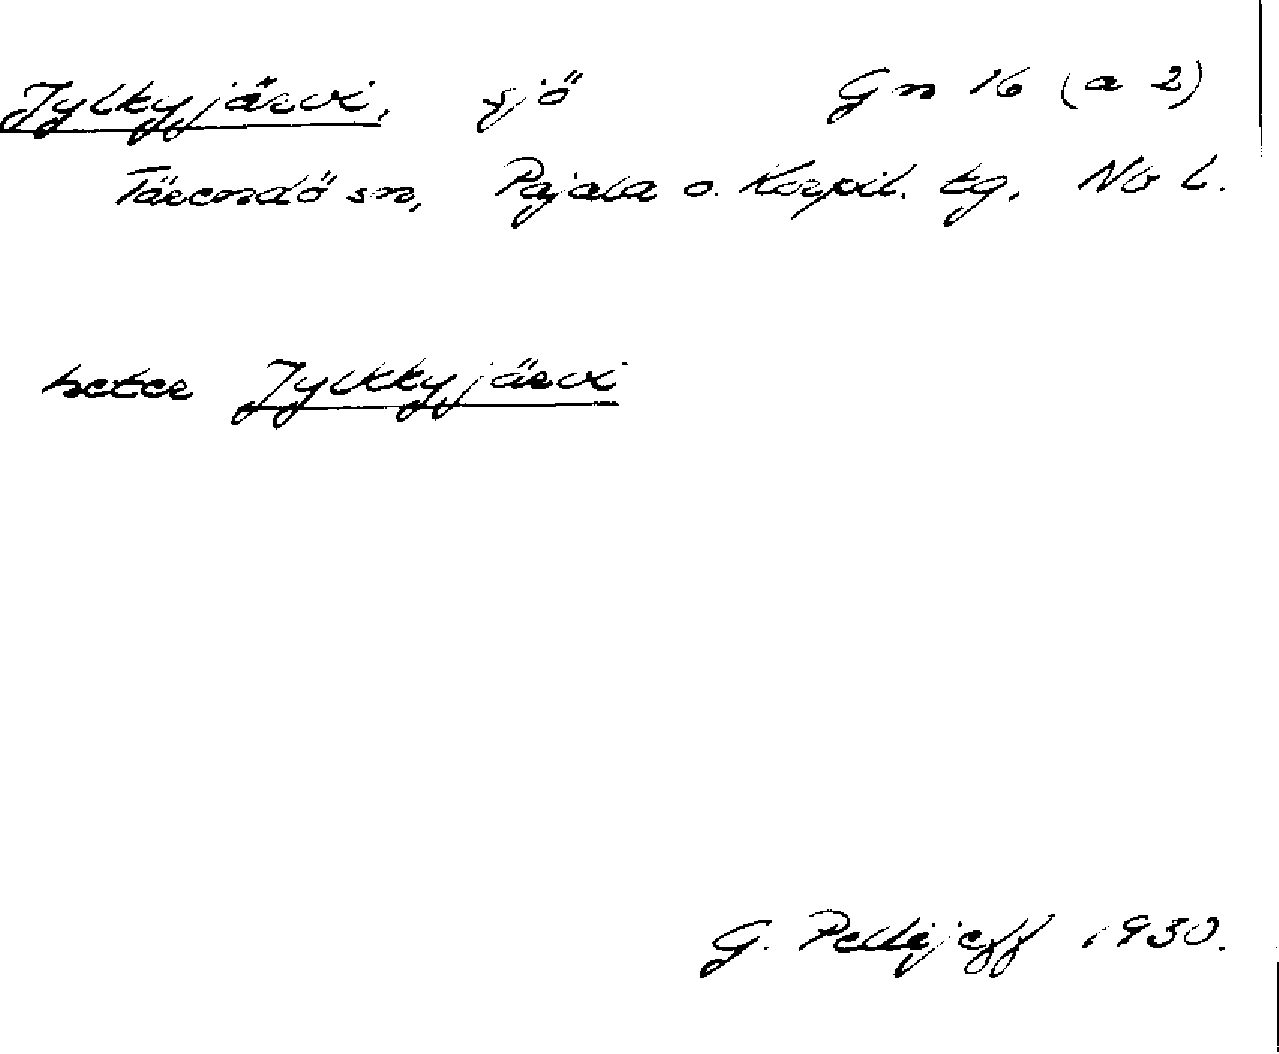 Jylkyjärvi, sjö Gn 16 (a 2)
Tärendö sn, Pajala o. Korpil. tg. Nb l.
heter Jylkkyjärvi
G. Pellijeff 1930.